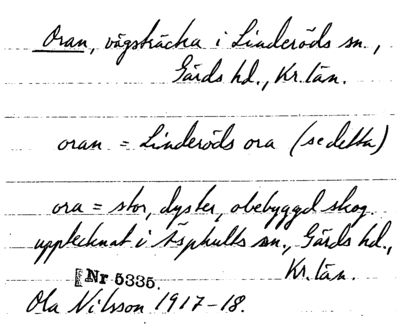 Oran, vägsträcka i Linderöds sn.,
Gärds hd., Kr. län.
oran = Linderöds ora (se detta)
ora = stor, dyster, obebyggd skog.
upptecknat i Äsphults sn., Gärds hd.,
Kr. län.
Nr 5335.
Ola Nilsson 1917-18.